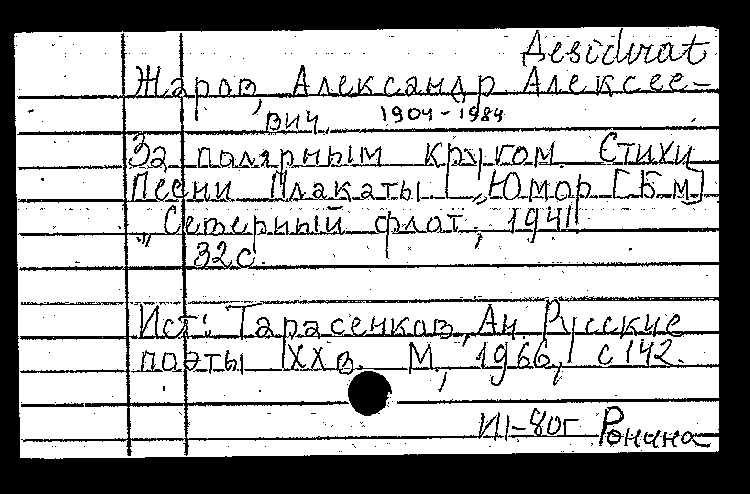 Desidirat
Жаров, Александр Алексее-
вич. 1904-1984
За полярным кругом. Стихи
Песни Плакаты. Юмор [Б м]
„Северный флот", 1941
32с.
Ист: Тарасенков, Ан. Русские
поэты XXв. М., 1966, с 142.
-80г Ронина